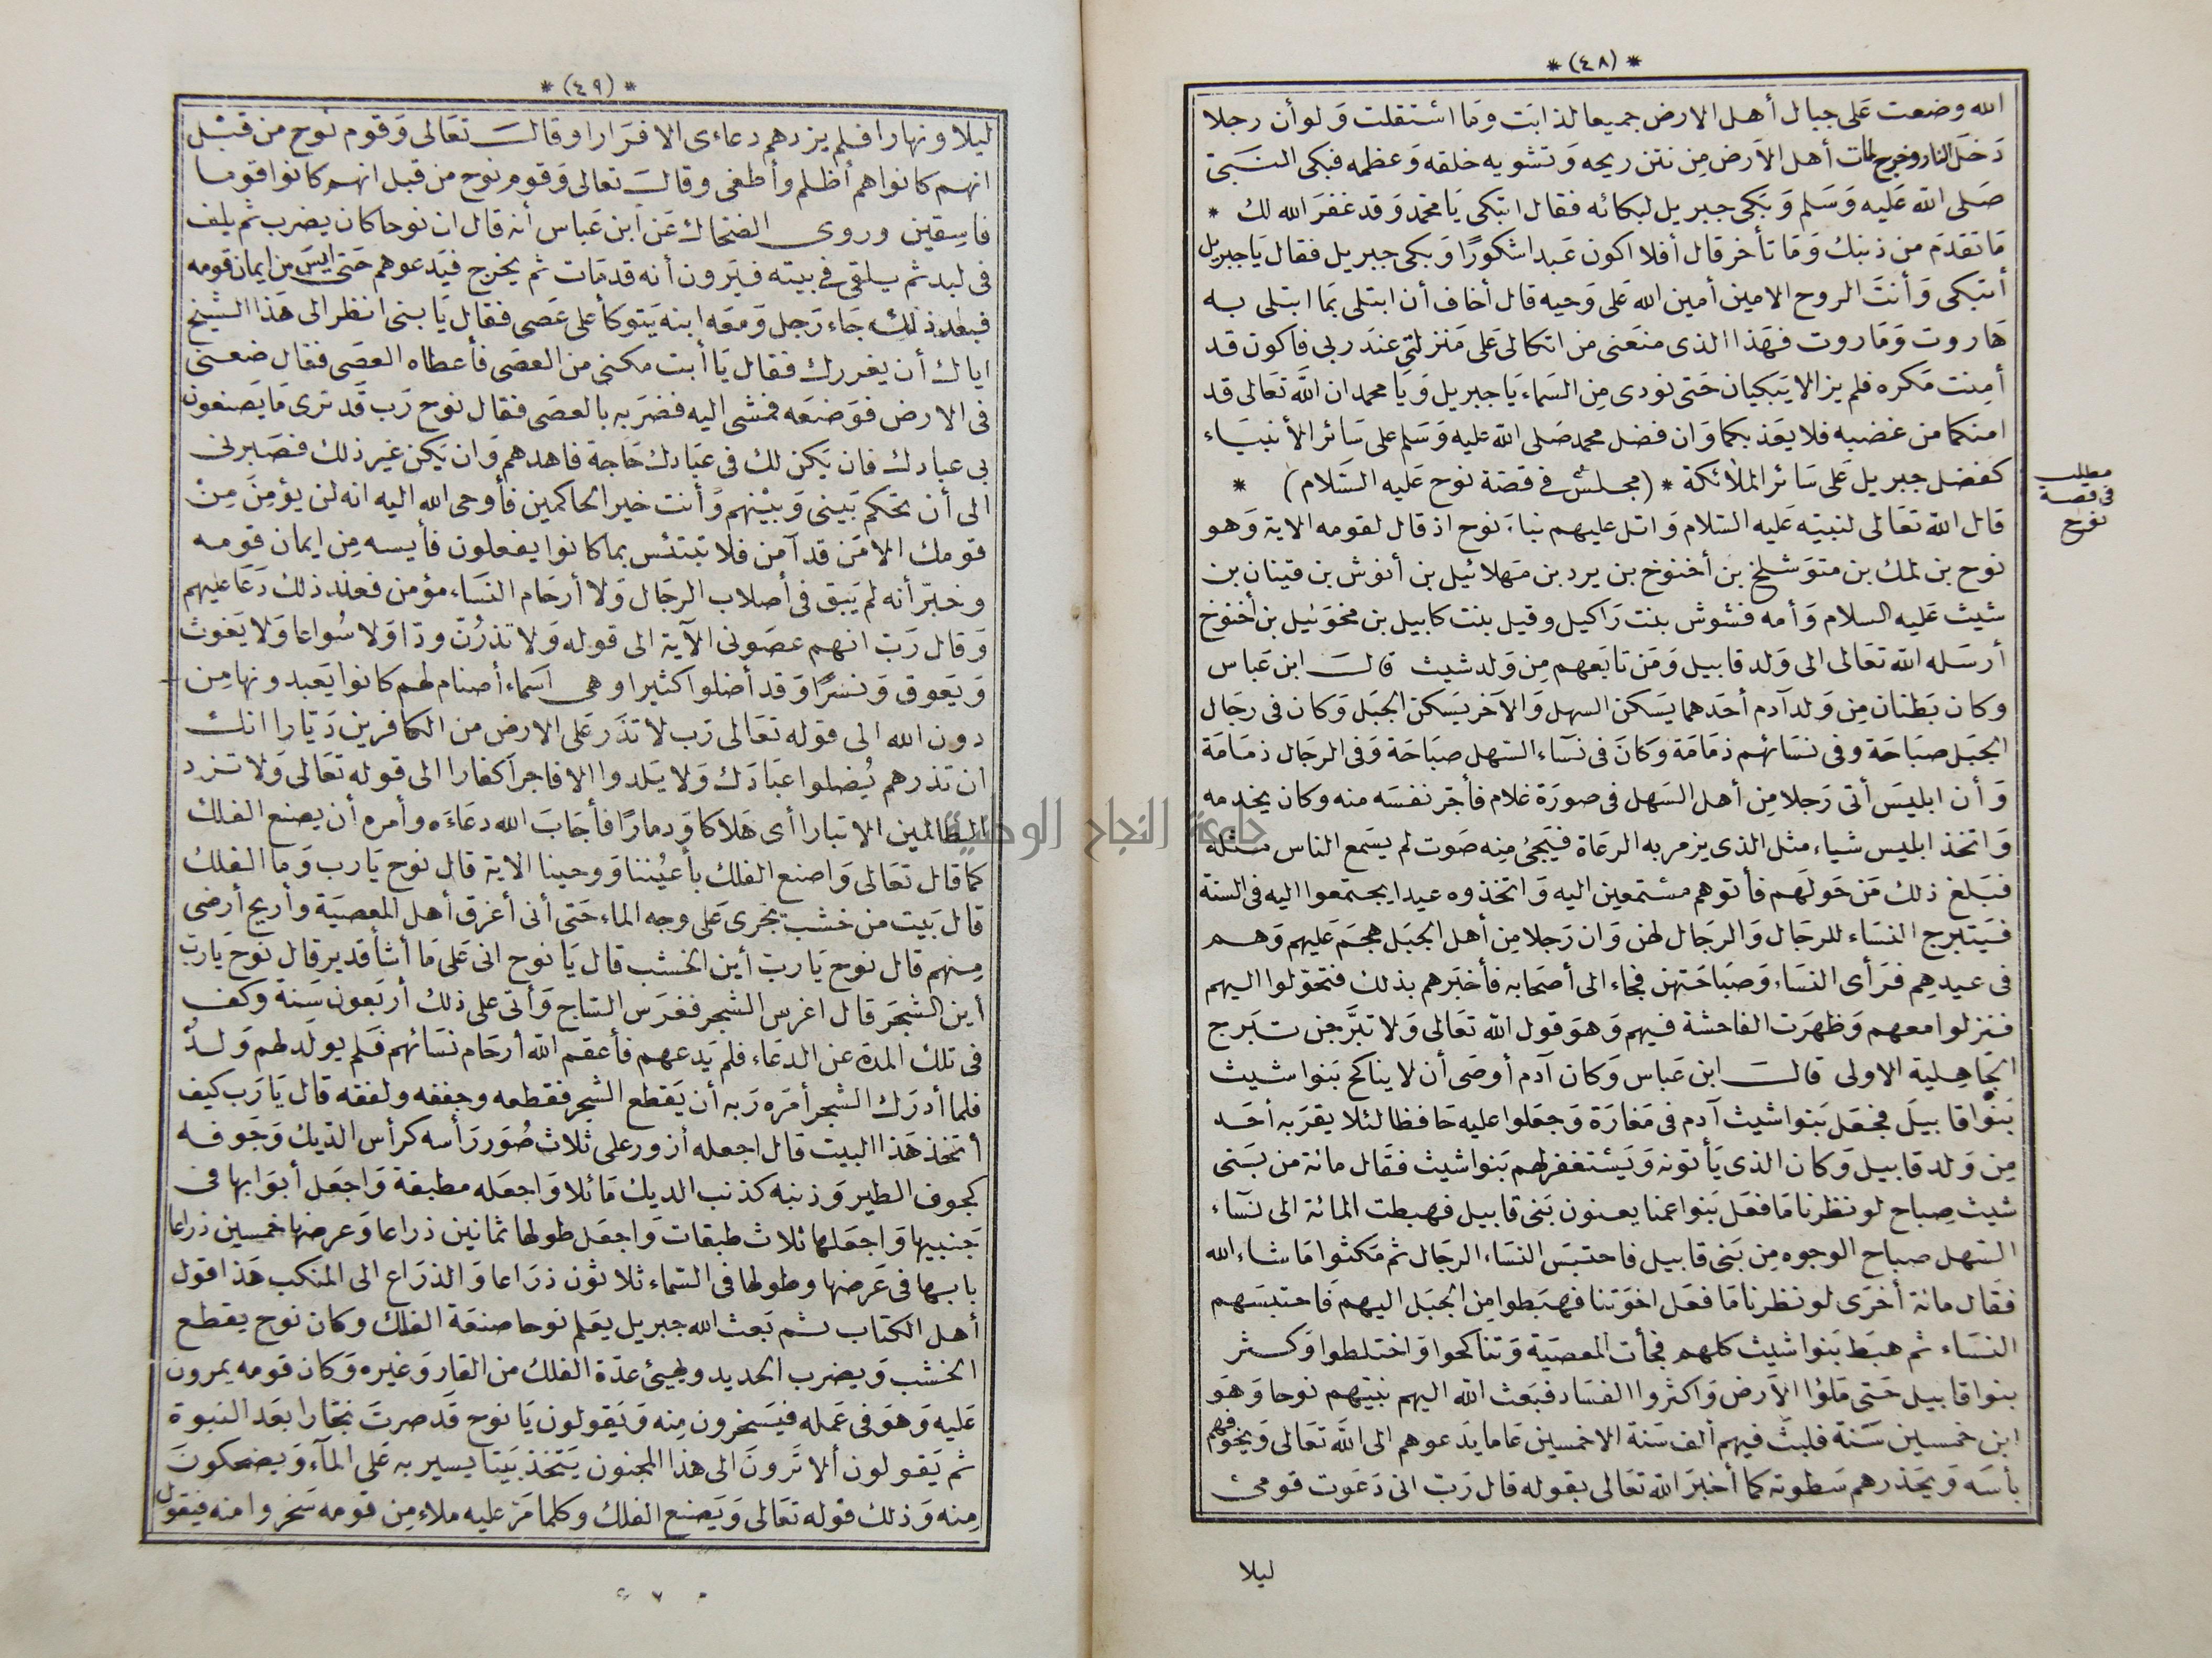 * (٤٨) *
الله وضعت عَلى جبال أهل الارض جميعا لذابَت وَمَا اسْتقلت وَلو أن رجلا
دَخل النار وخرج لمات أهل الاَرض مِن نتن ريحه وَتشويه خلقه وَعظمه فبكى النبىّ
صَلى الله عَليه وَسَلم وَبَكى جبريل لبكائه فقال اتبكى يَا محمد وَقد غفرَ الله لك *
مَا تقدَم من ذنبك وَمَا تأخر قال أفلا اكون عَبدا شكورًا وَبكى جبريل فقال يَا جبريل
أتبكى وَأنتَ الروح الامين أمين الله عَلى وَحيه قال أخاف أن ابتلى بمَا ابتلى به
هَاروت وَمَاروت فهَذا الذى منعَنى من اتكالى عَلى مَنزلتى عندَ ربى فاكون قد
أمِنت مَكره فلم يزالا يَبَكيان حَتى نودى مِن السَماء يَا جبريل وَيَا محمد ان الله تعَالى قد
امنكما من غضبه فلا يعَذبكما وَان فضل محمد صَلى الله عليه وَسَلم على سَائر الأنبيَاء
كفضل جبريل عَلى سَائر الملائكة * (مجلس فى قصّة نوح عَليه السَّلام) *
مطلب
فى قصة
نوح
قال الله تعَالى لنبيّه عَليه السّلام وَاتل عليهم نباء نوح اذ قال لقومه الاية وَهو
نوح بن لمك بن متوَشلخ بن أخنوخ بن يرد بن مَهلائيل بن أنوش بن قينان بن
شيث عَليه السلام وَأمه فشوش بنت رَاكيل وقيل بنت كابيل بن مخوَئيل بن أخنوخ
أرسَله الله تعَالى الى وَلد قابيل وَمَن تابَعهم مِن وَلد شيث قالـَ ابن عَباس
وكان بَطنان مِن وَلد آدم أحَدهما يسَكن السهل وَالآخر يَسكن الجبَل وَكان فى رجَال
الجبَل صبَاحَة وفى نسَائهم ذمَامَة وَكانَ فى نسآء السّهل صبَاحَة وَفى الرجَال ذمَامَة
وَأن ابليسَ أتى رَجلا مِن أهل السَهل فى صورَة غلام فأجّر نفسَه منه وكان يخدمه
وَاتخذ ابليس شياء مثل الذى يزمر به الرعَاة فيَجئ مِنه صَوت لم يسَمع الناس مثله
فبَلغ ذلك مَن حَولهَم فأتوهم مسْتمعين اليه وَاتخذوه عيدا يجتمعوا اليه فى السنة
فيَتبرج النسَاء للرجَال وَالرجَال لهن وَان رَجلا مِن أهل الجبَل هجمَ عَليهم وَهم
فى عيدهِم فرَأى النسَاء وَصبَاحَتهن فجاء الى أصحَابه فأخبَرهم بذلك فتحوّلوا اليهم
فنزلوا معهم وَظهرَت الفاحشة فيهم وَهوَ قول الله تعَالى وَلا تبَرَّجن تبَرج
الجَاهلية الاولى قالـَ ابن عَباس وَكان آدم أوصَى أن لا يناكح بَنوا شيث
بَنوا قابيلَ فجعَل بَنوا شيث آدم فى مَغارَة وَجعَلوا عليه حَافظا لئلا يقرَبه أحَد
مِن وَلد قابيل وَكان الذى يَأتونه وَيَسْتغفر لهم بَنوا شيث فقَال مائة من بَنى
شيث صِباح لو نظرنا مَا فعَل بَنوا عمنا يعنون بَنى قابيل فهبطت المائة الى نسآء
السّهل صباح الوجوه مِن بَنى قابيل فاحتبَسَ النسَاء الرجَال ثم مَكثوا مَا شاء الله
فقَال مائة أخرَى لو نظرنا مَا فعَل اخوَتنا فهبَطوا مِن الجبَل اليهم فَاحتبسَهم
النسَاء ثم هبَط بَنوا شيث كلهم فجأت المعصَيَة وَتناكحوا وَاختلطوا وَكثر
بنوا قابيل حَتى مَلؤا الاَرض وَاكثروا الفسَاد فبَعَث الله اليهم نبيّهم نوحا وَهَو
ابن خمسين سَنة فلبثَ فيهم ألف سَنة الا خمسين عَاما يدَعوهم الى الله تعَالى وَيخوفهم
بأسَه وَيحَذرهم سَطوته كما أخبرَ الله تعَالى بقوله قال رَبّ انى دَعَوت قومى
ليلا
* (٤٩) *
ليلا ونهارا فلم يزدهم دعاءى الا فرَارا وقالـَ تعَالى وَقوم نوح من قبْل
انهم كانوا هم أظلم وأطغى وقالـَ تعالى وَقوم نوح من قبل انهم كانوا قوما
فاسِقين وروى الضحاك عَن ابن عَباس أنه قال ان نوحا كان يضرب ثم يلف
فى لبد ثم يلقى فى بيته فيَرون أنه قد مَات ثم يخرج فيَدعوهم حَتى ايسَ من ايمان قومه
فبعد ذلك جَاء رَجل وَمعَه ابنه يَتوكأ على عَصَى فقال يَا بنى انظر الى هَذا الشيخ
اياك أن يغررك فقال يَا أبت مكنى من العصَى فأعطاه العصَى فقال ضعنى
فى الارض فوَضعَه فمشى اليه فضرَبه بالعصَى فقال نوح رَب قَد ترى مَا يَصنعون
بى عبادك فان يَكن لك فى عبَادك حَاجة فاهدهم وَان يَكن غيرَ ذلك فصَبرنى
الى أن تحكم بَينى وَبيْنهم وَأنت خير الحاكمين فأوحى الله اليه انه لن يؤمِنَ مِنْ
قومك الا مَن قد آمن فلا تبتئس بما كانوا يفعلون فأيسه مِن ايمان قومه
وخبّر أنه لم يَبق فى أصلاب الرجَال وَلا أرحَام النسَاء مؤمن فعند ذلك دَعَا عليهم
وَقال رَبّ انهم عصَونى الآية الى قوله وَلا تذرُنّ ودّا وَلا سُواعا وَلا يَغوث
وَيَعوق وَنسرًا وَقد أضلوا كثيرا وهى اسمَاء أصنام لهم كانوا يَعبدونها مِن
دون الله الى قوله تعَالى رَب لا تذَر عَلى الارض من الكافرين دَيّارا انك
ان تذرهم يُضلوا عبَادَك وَلا يَلدوا الا فاجرَا كفارا الى قوله تعَالى وَلا تزد
الظالمين الا تبارا أى هَلاكا وَدمارًا فأجَابَ الله دعَاءَه وأمره أن يصنع الفلك
كما قال تعَالى وَاصنع الفلك بأعيُننا وَوحينا الاية قال نوح يَارب وَما الفلك
قال بَيت من خشب يجرى عَلى وجه الماء حَتى أنى أغرق أهل المعصيَة وأريح أرضى
مِنهم قال نوح يَارب أين الخشب قال يَا نوح انى عَلى مَا أشأ قدير قال نوح يَاربّ
أين الشجَر قال اغرس الشجر فغرَس السّاج وَأتى على ذلك أربَعون سَنة وكف
فى تلك المدة عن الدعَاء فلم يَدعهم فأعقم الله أرحَام نسَائهم فلم يولد لهم وَلدٌ
فلما أدرَك الشجر أمَره رَبه أن يَقطع الشجر فقطعه وجففه ولفقه قال يَا رَب كيف
أتخذ هَذا البيت قال اجعله أزور على ثلاث صُوَر رَأسه كرأس الدّيك وَجَوفه
كجوف الطير وَذنبه كذنب الديك مَائلا وَاجعَله مطبقة وَاجعَل أبوَابها فى
جَنبيها وَاجعَلها ثلاث طبقات وَاجعَل طولها ثمانين ذراعا وَعرضها خمسين ذراعا
بابها فى عَرضها وطولها فى السّماء ثلاثون ذرَاعا وَالذرَاع الى المنكب هَذا قول
أهل الكتاب ثم بَعث الله جبريل يعَلم نوحا صنعَة الفلك وكان نوح يقطع
الخشب وَيضرب الحديد ويهيئ عدّة الفلك من القار وَغيره وَكان قومه يمرون
عَليه وَهوَ فى عَمله فيَسخرون مِنه وَيَقولون يَا نوح قَد صرتَ نجّارا بعَد النبوة
ثم يَقولون ألا تَرونَ الى هذا المجنون يَتخذ بَيتا يسير به عَلى المآء وَيضحكونَ
مِنه وَذلك قوله تعَالى وَيَصنع الفلك وكلما مَرّ عليه ملاء مِن قومه سَخروا منه فيقول
جامعة النجاح الوطنية